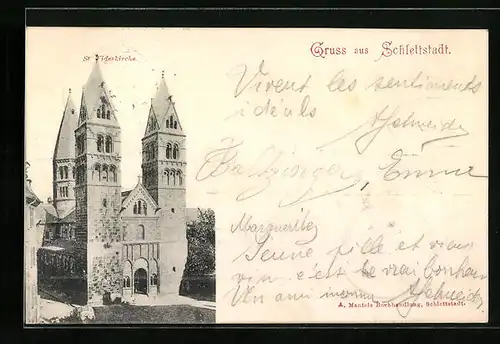 St. Fideskirche.
Gruss aus Schlettstadt.
Vivent les sentiments
idéals
Schneider
Emma
Marguerite
Jeune fille et vieux
vin c'est le vrai bonheur
Un ami
Schneider
A. Mantels Buchhandlung, Schlettstadt.